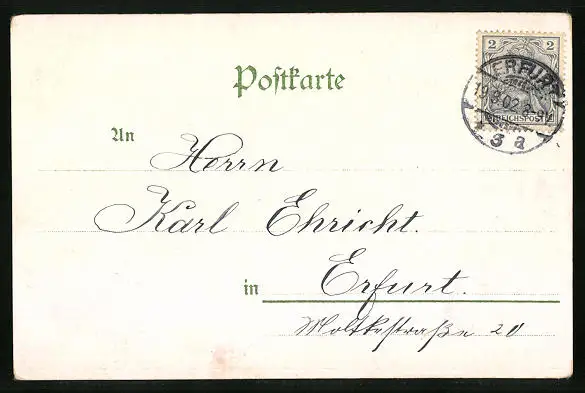 Postkarte
2 2
REICHSPOST
ERFURT
19.3.02.
3 a
An
Herrn
Karl Ehricht.
in Erfurt.
Moltkestraße 20